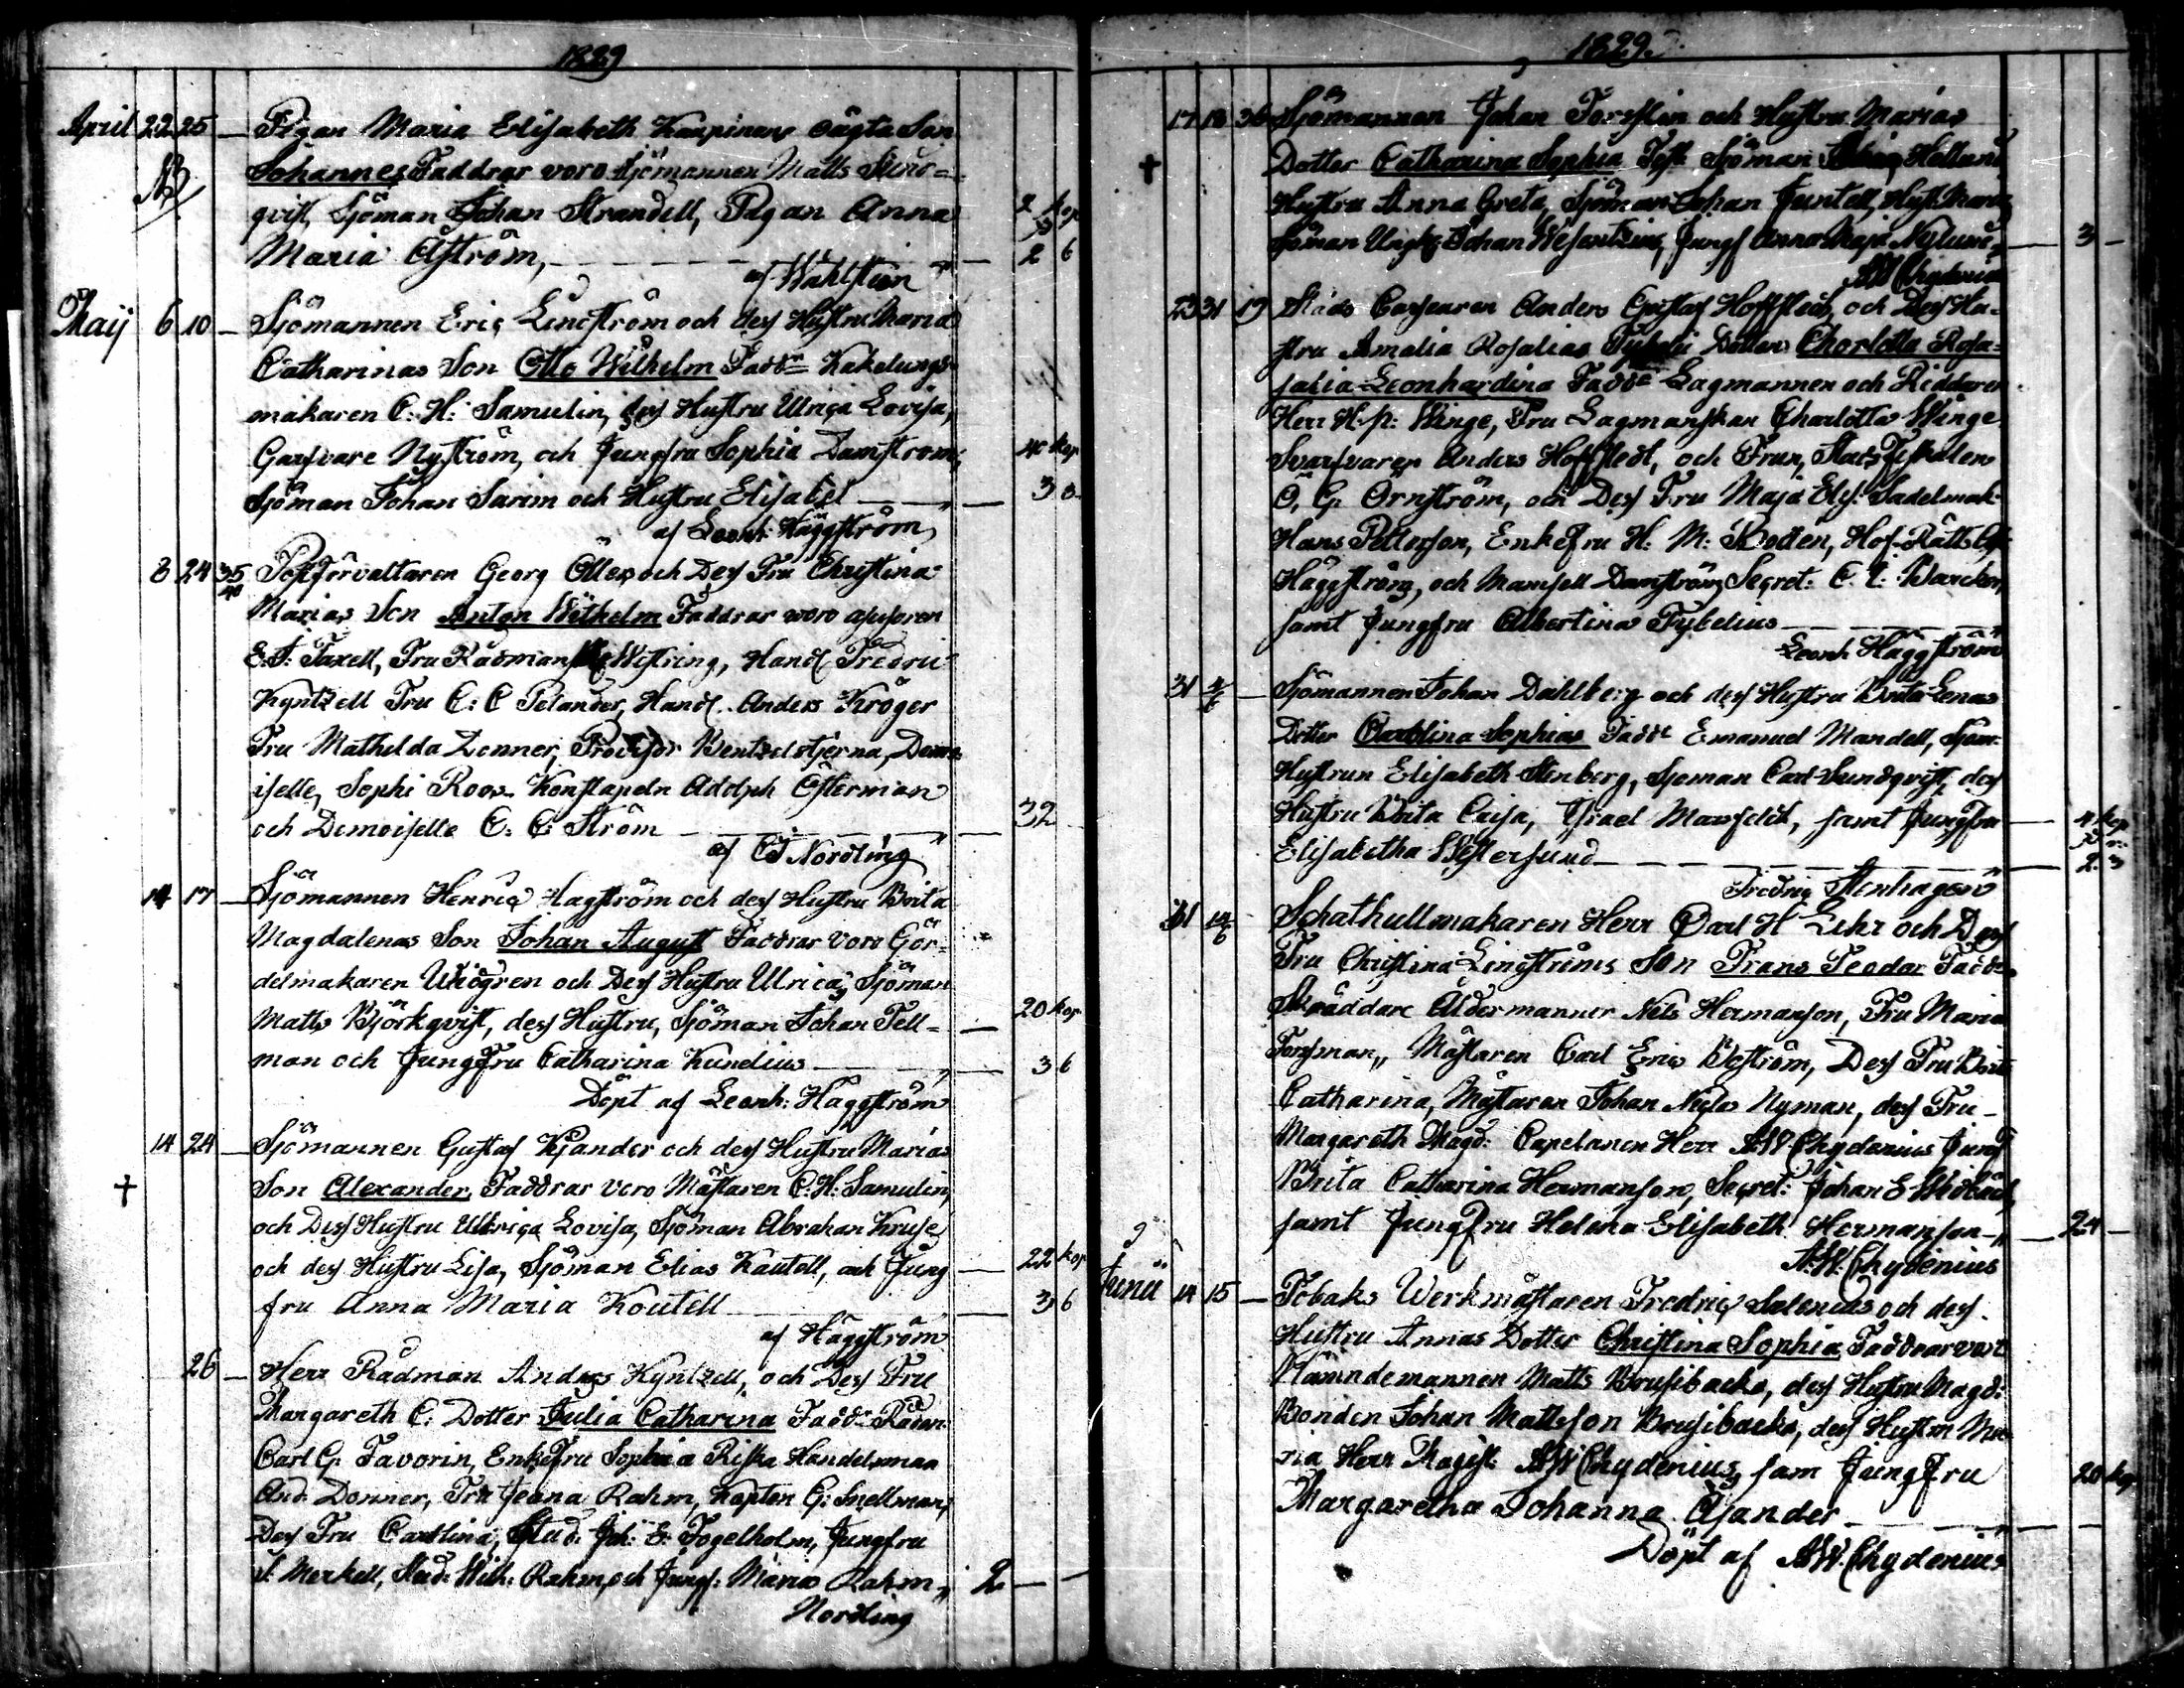 1829
April 22 25 Pigan Maria Elisabeth Kaupinens oägta Son
NB Johannes Faddrar voro Sjömannen Matts
qvist, Sjöman Johan Strandell, Pigan Anna 2 kop
Maria Åström, 2 6
af Wahlstein
Maij 6 10 Sjömannen Eric Lindström och des Hustru Maria
Catharinas Son Otto Wilhelm Fadd Kakelungs-
makaren C. H. Samulin, des Hustru Ulrica Lovisa,
Garfvare Nyström, och Jungfru Sophia Damström, 40 kop
Sjöman Johan Sarim och Hustru Elisabet 3
af Leonh: Häggström
8 24 35 Postförvaltaren Georg Öller och Des Fru Christina
40 Marias Son Anton Wilhelm Faddrar woro assessoren
E. J. Taxell, Fru Rådmanskan Westring, Handl Fredric
Kyntzell Fru C: C Pelander, Handl. Anders Kröger
Fru Mathilda Donner, Provisor Bentzelstjerna, Demo-
iselle, Sophi Roos Konstapeln Adolph Österman
och Demoiselle C. C. Ström 32
af CJ Nordling
14 17 Sjömannen Henric Hagström och des Hustru Brita
Magdalenas Son Johan August Faddrar voro Gör-
delmakaren Widgren och Des Hustru Ulrica, Sjöman
Matts Björkqvist, des Hustru, Sjöman Johan Tell- 20 kop
man och Jungfru Catharina Kunelius 3 6
Döpt af Leonh: Häggström
14 24 Sjömannen Gustaf Kjander och des Hustru Marias
† Son Alexander, Faddrar voro Mästaren C. H. Samulin,
och Des Hustru Ulrica Lovisa, Sjöman Abraham Kruse
och des Hustru Lisa, Sjöman Elias Kautell, och Jung 22 kop
fru Anna Maria Koutell 3 6
af Häggström
26 Herr Rådman Anders Kyntzell, och Des Fru
Margareth C: Dotter Julia Catharina Fadd: Rådm:
Carl G. Favorin, Enkefru Sophia Riska Handelsman
And. Donner, Fru Jeana Rahm, Kapten G: Snellman,
Des Fru Carolina, Stud. Joh: E. Fogelholm, Jungfru
Merkell, Stud: Wilh: Rahm, och Jungf: Maria Rahm 2
Nordling
1829
17 18 36 Sjömannen Johan Forsstin och Hustru Marias
† Dotter Catharina Sophia Test Sjöman Hellund
Hustru Anna Greta, Sjöman Johan Juntell, Hust Maria
Sjöman Ungk: Johan Wesentzius, Jungf Anna Maja Nylund, 3
AW Chydenius
23 31 19 Stads Cassuren Anders Gustaf Hoffstedt, och Des Hu-
stru Amalia Rosalias Dotter Charlotta Rosa-
Leonhardina Fadd Lagmannen och Riddaren
Herr H. P: Winge, Fru Lagmanskan Charlotta Winge
Svarfvaren Anders Hoffstedt, och Frun, Stads Fiskalen
C. G. Örnström, och Des Fru Maja Elis: Sadelmak-
Hans Petterson, Enkefru H. M. Bodén, Hof-Rätts
Häggström, och Mamsell Damström, Secret: C. E.
samt Jungfru Albertina Tybelius
Leonh Häggström
31 4/6 Sjömannen Johan Dahlberg och des Hustru Brita Lenas
Dotter Carolina Sophias Fadd Emanuel Mandell, Sjöm:
Hustrun Elisabeth Stenberg, Sjöman Carl Sundqvist, des
Hustru Brita Caisa, Israel Mansfeldt, samt Jungfru 4 kop
Elisabetha Westersund 2 3
Fredric Stenhagen
31 14/6 Schathullmakaren Herr Carl H Lihr och Des
Fru Christina Lingströms Son Frans Teodor Fadd
Skräddare Åldermannen Nils Hermanson, Fru Maria
Forsman, Mästaren Carl Eric Boström, Des Fru Brita
Catharina, Mästaren Johan Nyman, des Fru
Margareth Magd: Capelanen Herr AW Chydenius Jungf
Brita Catharina Hermanson, Secret: Johan E Widbäck,
samt Jungfru Helena Elisabeth Hermanson 24
A.W. Chydenius
Junii 14 15 Tobaks Werkmästaren Fredric Salenius och des
Hustru Annas Dotter Christina Sophia, Faddrar voro
Nämndemannen Matts Brusibacka, des Hustru Magd:
Bonden Johan Mattsson Brusibacka, des Hustru Ma-
ria Herr Magist: AW Chydenius, sam Jungfru 20 kop
Margaretha Johanna Ajander
Döpt af AW Chydenius